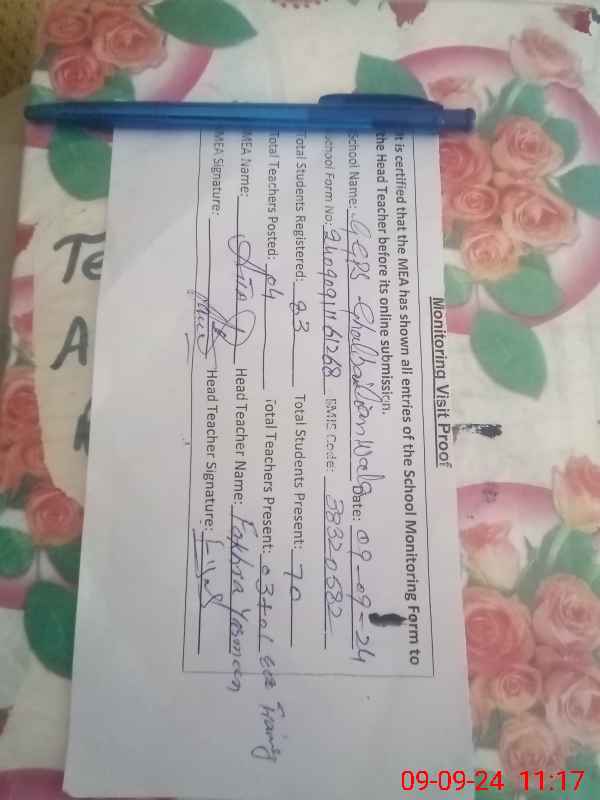 Monitoring Visit Proof
It is certified that the MEA has shown all entries of the School Monitoring Form to
the Head Teacher before its online submission.
School Name: GGPS Date: 09-09-24
School Form No: EMIS Code: 38320582
Total Students Registered: 83 Total Students Present: 70
Total Teachers Posted: 04 Total Teachers Present: 03+01
MEA Name: Head Teacher Name: Fakhra Yasmeen
MEA Signature: Head Teacher Signature:
Te
A
09-09-24 11:17